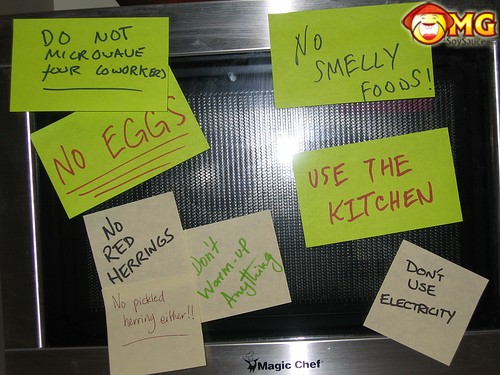 DO NOT
MICROWAVE
YOUR COWORKERS
NO EGGS
NO
SMELLY
FOODS!
USE THE
KITCHEN
NO
RED
HERRINGS
No pickled
herring either!!
Don't
Warm-up
Anything
DON'T
USE
ELECTRICITY
Magic Chef
OMG
SoySauce